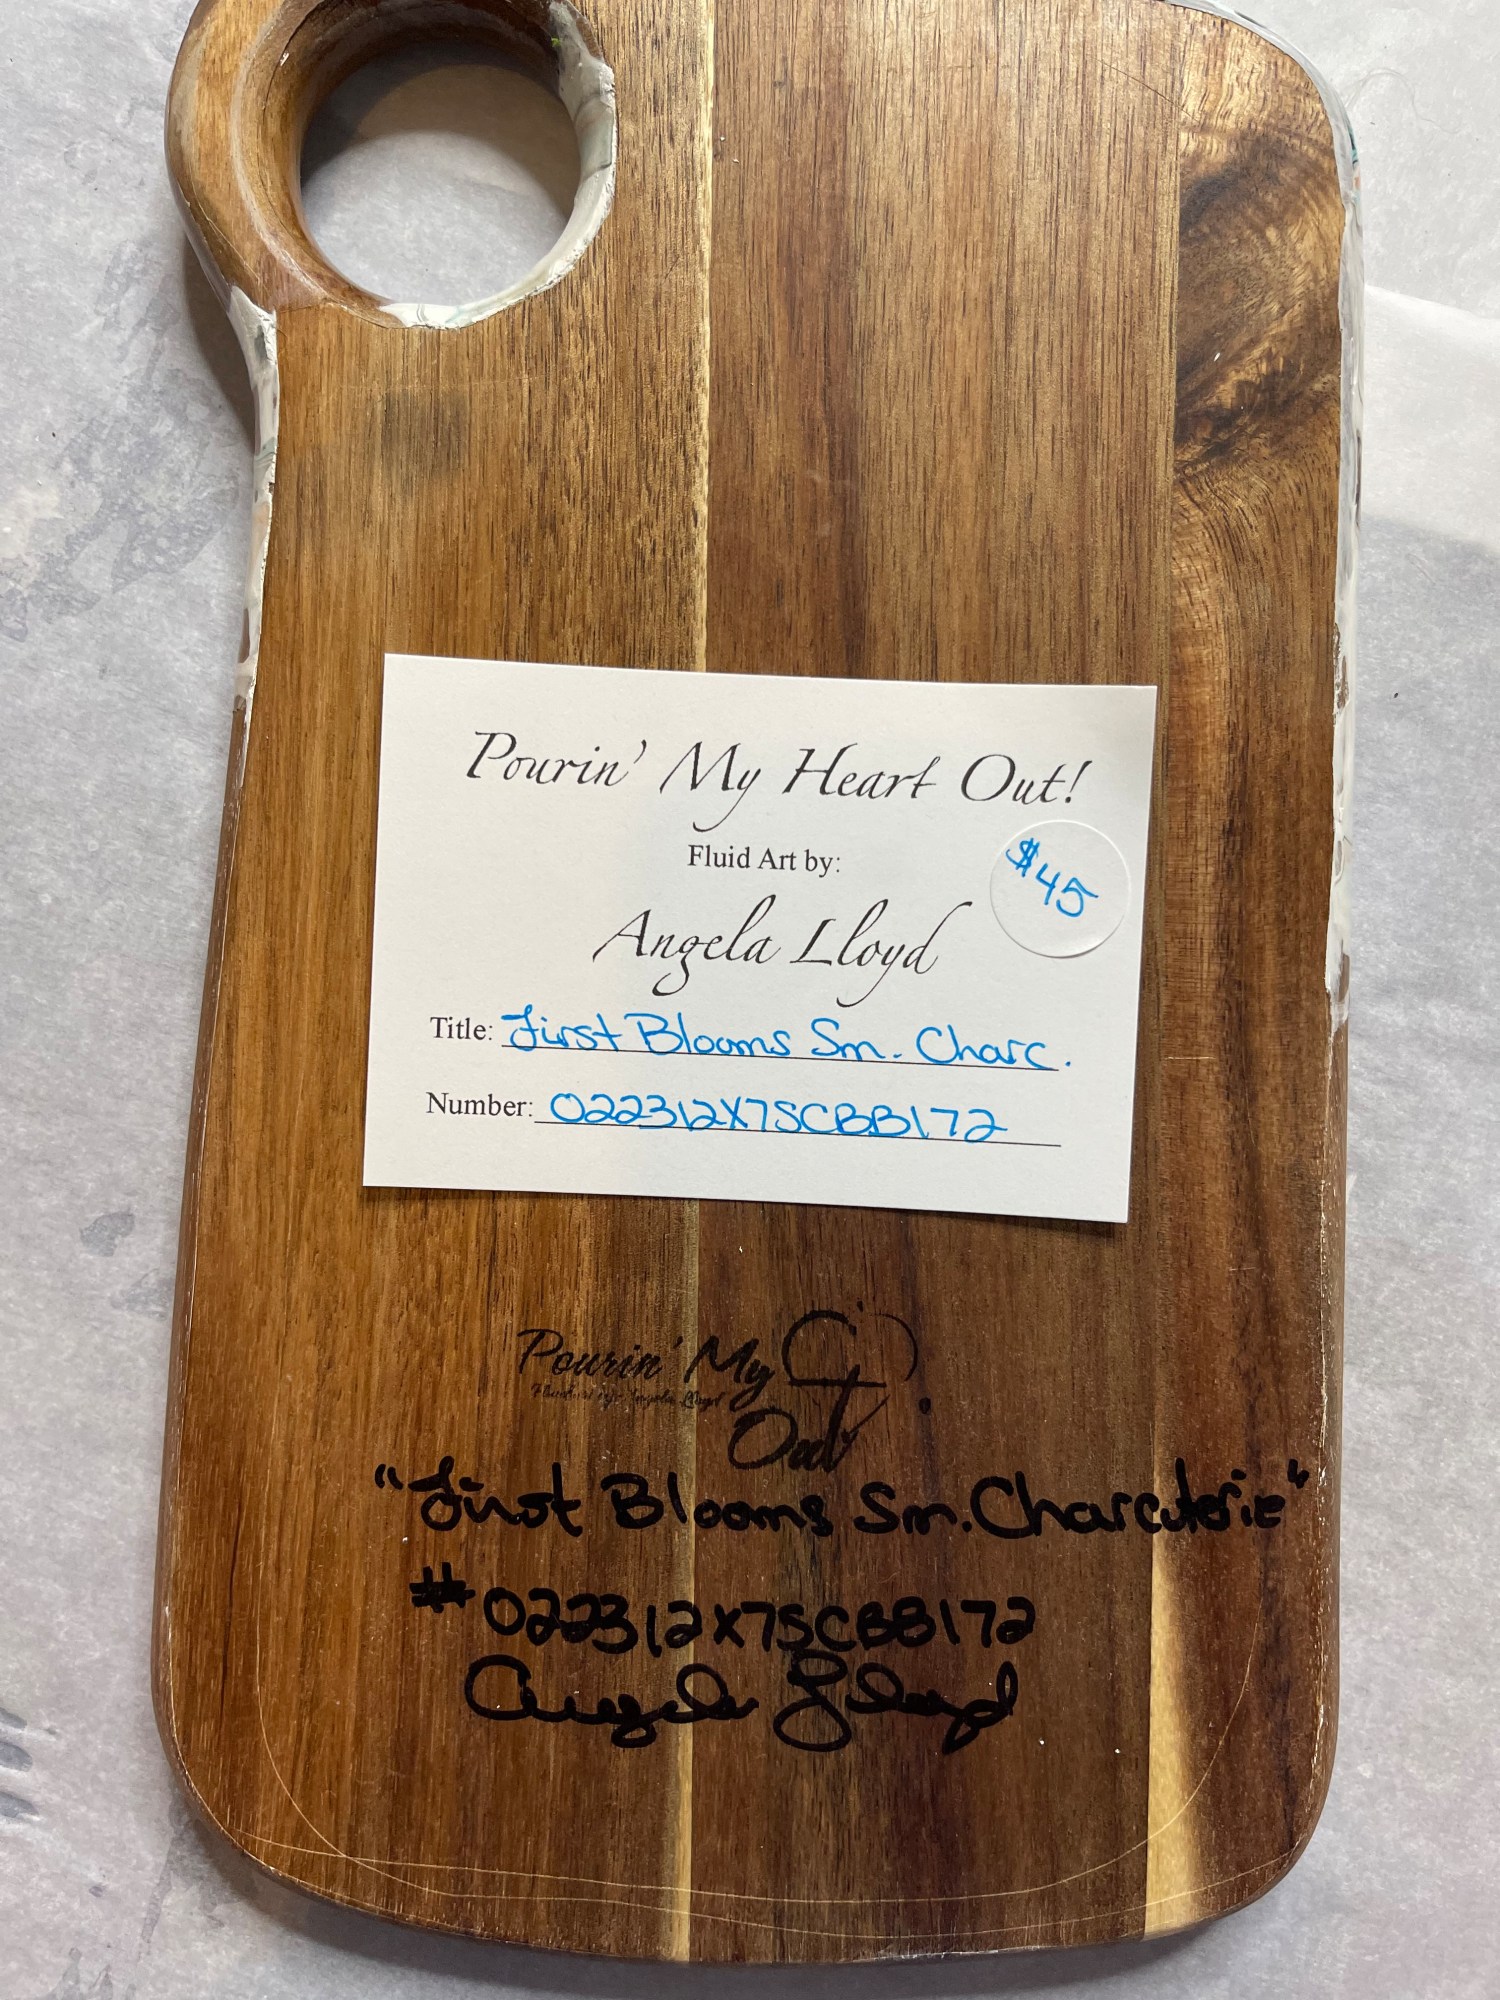 Pourin' My Heart Out!
Fluid Art by:
$45
Angela Lloyd
Title: First Blooms Sm. Charc.
Number: 022312X7SCBB172
Pourin' My
Fluid Art by: Angela Lloyd
Out
"First Blooms Sm. Charcuterie"
#022312X7SCBB172
Angela Lloyd